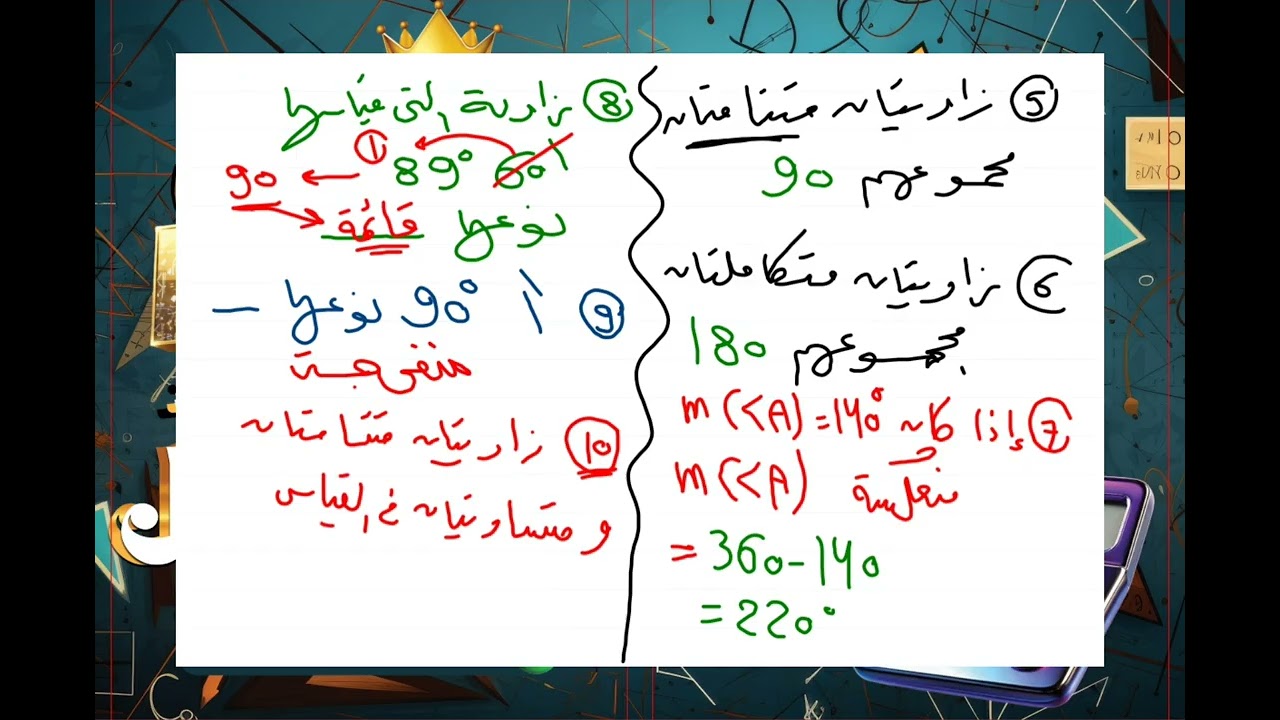 ⑤ زاويتان متتامتان
مجموعهم 90
⑥ زاويتان متكاملتان
مجموعهم 180
⑦ إذا كان m(<A)=140°
منعكسة m(<A)
= 360-140
= 220°
⑧ زاوية التى قياسها
60\ 89° ① ← 90
نوعها قائمة
⑨ \ 1 90° نوعها —
منفرجة
⑩ زاويتان متتامتان
و متساويتان في القياس